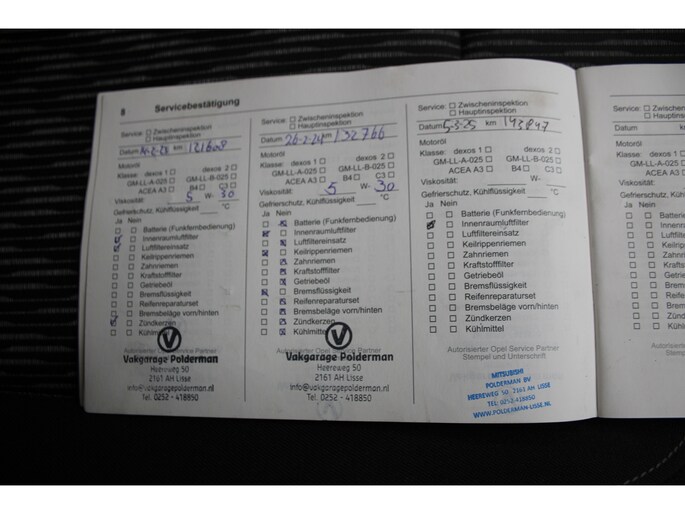 8 Servicebestätigung
Service: Zwischeninspektion
Hauptinspektion
Datum km 121608
Motoröl
Klasse: dexos 1 dexos 2
GM-LL-A-025 GM-LL-B-025
ACEA A3 B4 C3
Viskosität: 5 W- 30
Gefrierschutz, Kühlflüssigkeit °C
Ja Nein
Batterie (Funkfernbedienung)
Innenraumluftfilter
Luftfiltereinsatz
Keilrippenriemen
Zahnriemen
Kraftstofffilter
Getriebeöl
Bremsflüssigkeit
Reifenreparaturset
Bremsbeläge vorn/hinten
Zündkerzen
Kühlmittel
Autorisierter Opel Service Partner
Vakgarage Polderman
Heereweg 50
2161 AH Lisse
info@vakgaragepolderman.nl
Tel. 0252 - 418850
Service: Zwischeninspektion
Hauptinspektion
Datum 26-2-24 km 132766
Motoröl
Klasse: dexos 1 dexos 2
GM-LL-A-025 GM-LL-B-025
ACEA A3 B4 C3
Viskosität: 5 W- 30
Gefrierschutz, Kühlflüssigkeit °C
Ja Nein
Batterie (Funkfernbedienung)
Innenraumluftfilter
Luftfiltereinsatz
Keilrippenriemen
Zahnriemen
Kraftstofffilter
Getriebeöl
Bremsflüssigkeit
Reifenreparaturset
Bremsbeläge vorn/hinten
Zündkerzen
Kühlmittel
Autorisierter Opel Service Partner
Vakgarage Polderman
Heereweg 50
2161 AH Lisse
info@vakgaragepolderman.nl
Tel. 0252 - 418850
Service: Zwischeninspektion
Hauptinspektion
Datum 5-3-25 km
Motoröl
Klasse: dexos 1 dexos 2
GM-LL-A-025 GM-LL-B-025
ACEA A3 B4 C3
Viskosität: W-
Gefrierschutz, Kühlflüssigkeit °C
Ja Nein
Batterie (Funkfernbedienung)
Innenraumluftfilter
Luftfiltereinsatz
Keilrippenriemen
Zahnriemen
Kraftstofffilter
Getriebeöl
Bremsflüssigkeit
Reifenreparaturset
Bremsbeläge vorn/hinten
Zündkerzen
Kühlmittel
Autorisierter Opel Service Partner
Stempel und Unterschrift
MITSUBISHI
POLDERMAN BV
HEEREWEG 50, 2161 AH LISSE
TEL. 0252-418850
WWW.POLDERMAN-LISSE.NL
Service:
Datum
Motoröl
Klasse:
GM-LL
Viskosität:
Gefrierschu
Ja Nein